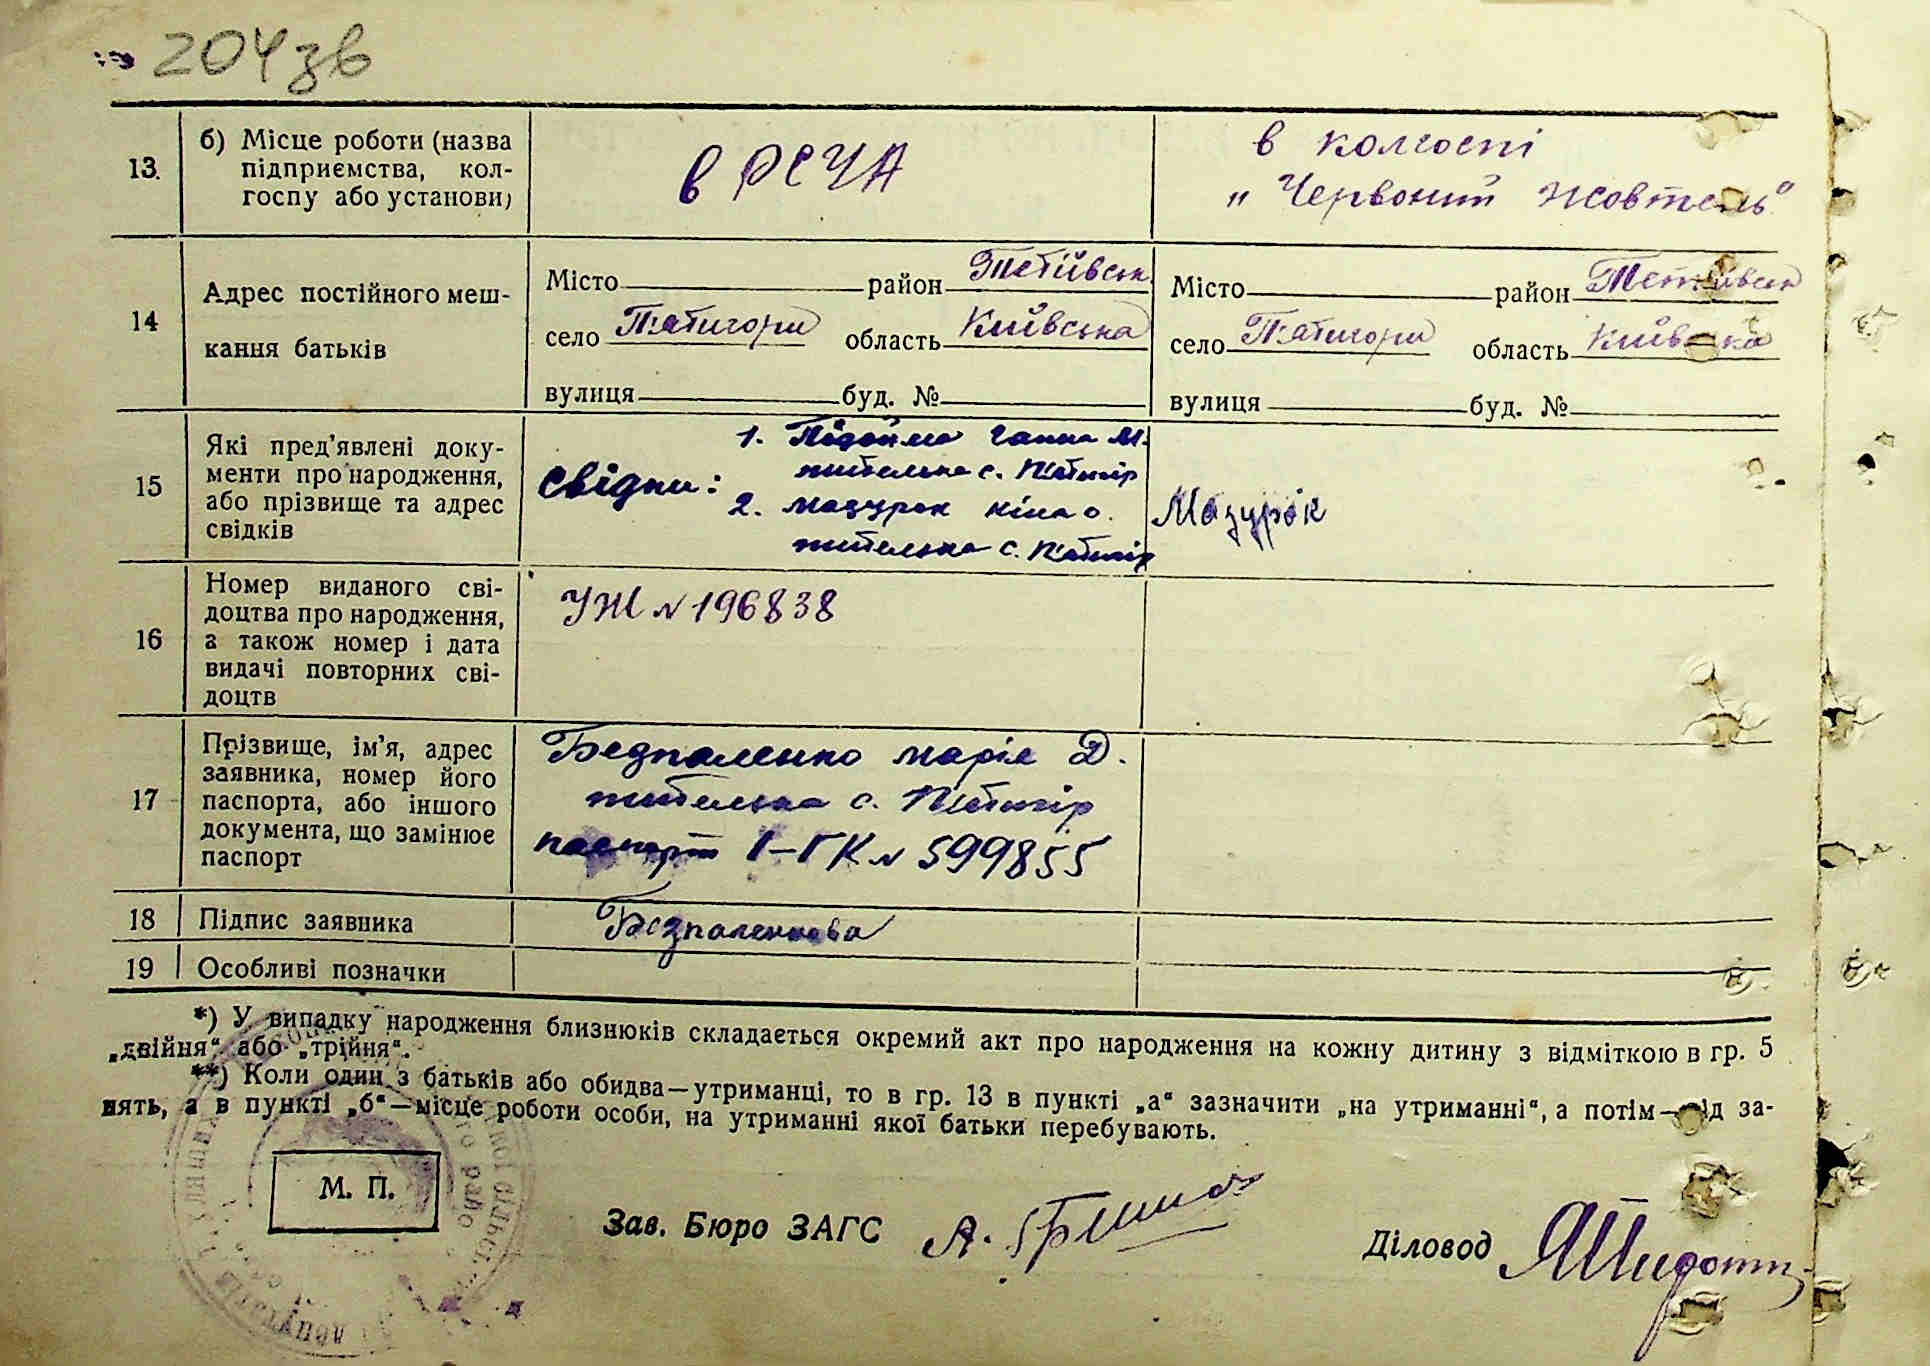 204зв
13. б) Місце роботи (назва підприємства, колгоспу або установи)
в РСЧА
в колгоспі
„Червоний Жовтень"
14 Адрес постійного мешкання батьків
Місто район Тетіївськ
село П'ятигори область Київська
вулиця буд. №
Місто район Тетіївськ
село П'ятигори область Київська
вулиця буд. №
15 Які пред'явлені документи про народження, або прізвище та адрес свідків
Свідки: 1. Підойма Ганна М.
жителька с. П'ятигір
2. Мазурок Ніна О.
жителька с. П'ятигір
Мазурок
16 Номер виданого свідоцтва про народження, а також номер і дата видачі повторних свідоцтв
УЖ № 196838
17 Прізвище, ім'я, адрес заявника, номер його паспорта, або іншого документа, що замінює паспорт
Безпаленко Марія Д.
жителька с. П'ятигір
паспорт I–ГК № 599855
18 Підпис заявника
Безпаленкова
19 Особливі позначки
*) У випадку народження близнюків складається окремий акт про народження на кожну дитину з відміткою в гр. 5
„двійня" або „трійня".
**) Коли один з батьків або обидва—утриманці, то в гр. 13 в пункті „а" зазначити „на утриманні", а потім—рід за-
нять, а в пункті „б"—місце роботи особи, на утриманні якої батьки перебувають.
М. П.
Зав. Бюро ЗАГС А.
Діловод